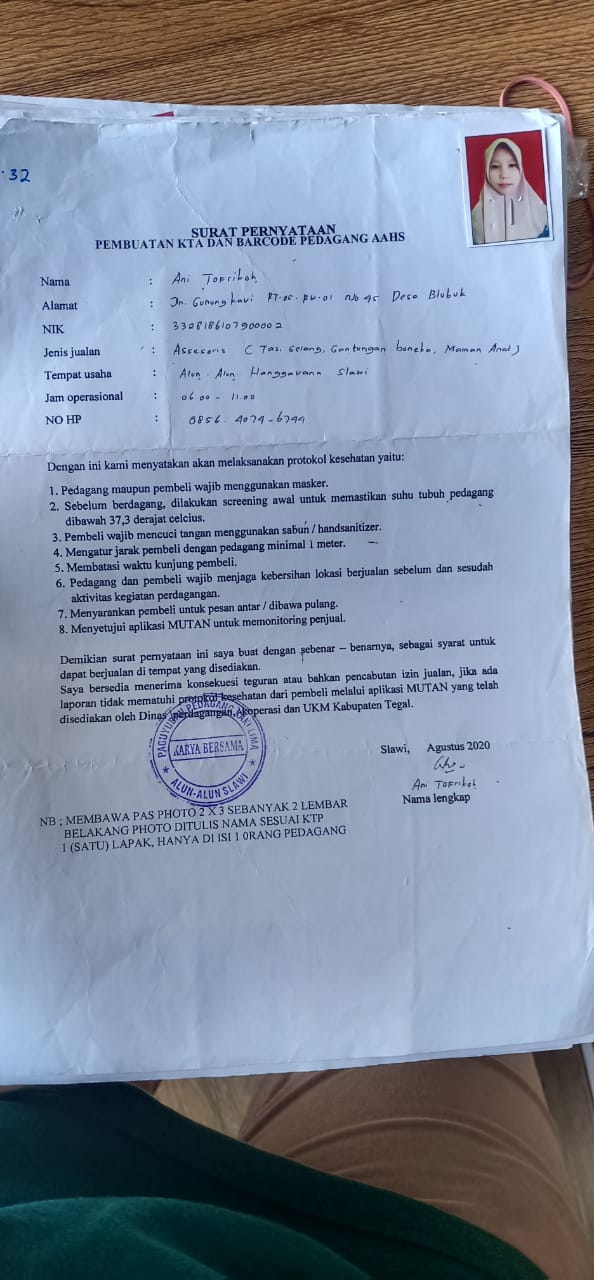 32
SURAT PERNYATAAN
PEMBUATAN KTA DAN BARCODE PEDAGANG AAHS
Nama : Ani Tofrikoh
Alamat : Jn. Gunung kawi RT.05. RW.01 No 45 Desa Blubuk
NIK : 3328186107900002
Jenis jualan : Assesoris ( Tas, Gelang, Gantungan boneka, Mainan Anak)
Tempat usaha : Alun - Alun Hanggawana Slawi
Jam operasional : 06.00 - 11.00
NO HP : 0856-4074-6744
Dengan ini kami menyatakan akan melaksanakan protokol kesehatan yaitu:
1. Pedagang maupun pembeli wajib menggunakan masker.
2. Sebelum berdagang, dilakukan screening awal untuk memastikan suhu tubuh pedagang
dibawah 37,3 derajat celcius.
3. Pembeli wajib mencuci tangan menggunakan sabun / handsanitizer.
4. Mengatur jarak pembeli dengan pedagang minimal 1 meter.
5. Membatasi waktu kunjung pembeli.
6. Pedagang dan pembeli wajib menjaga kebersihan lokasi berjualan sebelum dan sesudah
aktivitas kegiatan perdagangan.
7. Menyarankan pembeli untuk pesan antar / dibawa pulang.
8. Menyetujui aplikasi MUTAN untuk memonitoring penjual.
Demikian surat pernyataan ini saya buat dengan sebenar – benarnya, sebagai syarat untuk
dapat berjualan di tempat yang disediakan.
Saya bersedia menerima konsekuesi teguran atau bahkan pencabutan izin jualan, jika ada
laporan tidak mematuhi protokol kesehatan dari pembeli melalui aplikasi MUTAN yang telah
disediakan oleh Dinas perdagangan, koperasi dan UKM Kabupaten Tegal.
PAGUYUBAN PEDAGANG KAKI LIMA
KARYA BERSAMA
ALUN-ALUN SLAWI
Slawi, Agustus 2020
Ani Tofrikoh
Nama lengkap
NB ; MEMBAWA PAS PHOTO 2 X 3 SEBANYAK 2 LEMBAR
BELAKANG PHOTO DITULIS NAMA SESUAI KTP
1 (SATU) LAPAK, HANYA DI ISI 1 0RANG PEDAGANG